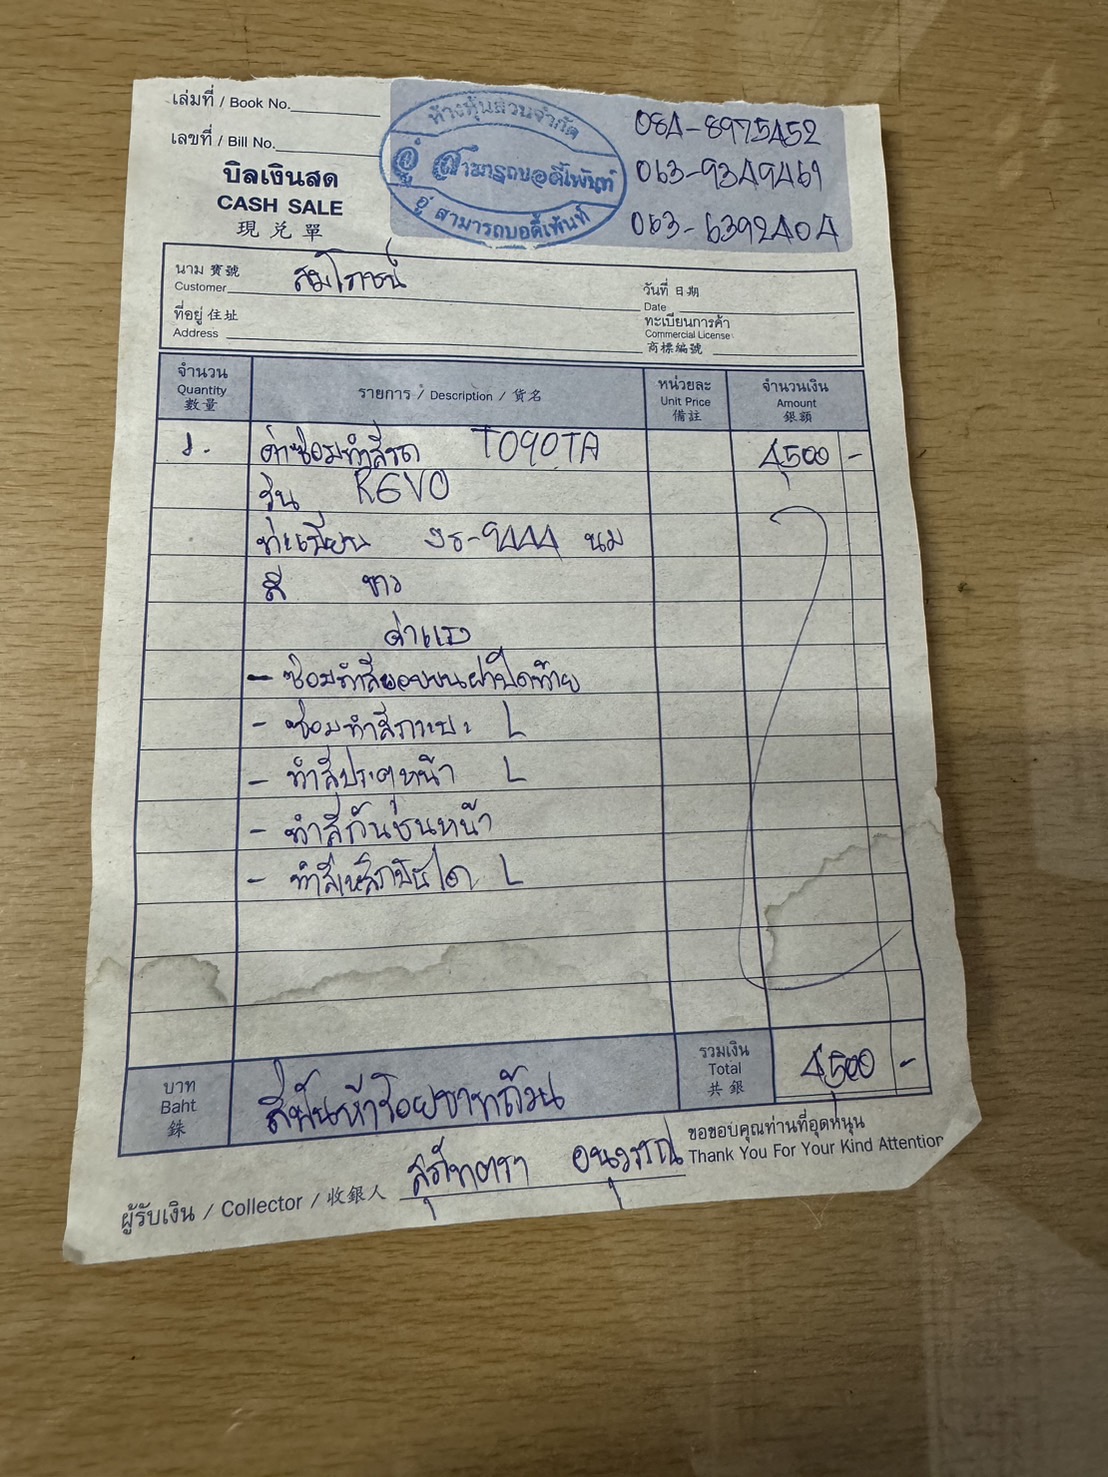 เล่มที่ / Book No.
เลขที่ / Bill No.
บิลเงินสด
CASH SALE
現兑單
ห้างหุ้นส่วนจำกัด
อู่ สามารถบอดี้เพ้นท์
อู่ สามารถบอดี้เพ้นท์
084-8975452
063-9349461
063-6392404
นาม 寶號
Customer สมโภชน์
วันที่ 日期
Date
ที่อยู่ 住址
Address
ทะเบียนการค้า
Commercial License
商標編號
จำนวน รายการ / Description / 貨名 หน่วยละ จำนวนเงิน
Quantity Unit Price Amount
數量 備註 銀額
1. ค่าซ่อมทำสีรถ TOYOTA 4,500 -
รุ่น REVO
ทะเบียน 9444 นม
สี ขาว
ค่าแรง
- ซ่อมทำสีขอบบนฝาปิดท้าย
- ซ่อมทำสีกระบะ L
- ทำสีประตูหน้า L
- ทำสีกันชนหน้า
- ทำสีเหล็กบันได L
บาท
Baht
銖
สี่พันห้าร้อยบาทถ้วน
รวมเงิน
Total
共銀
4,500 -
ขอขอบคุณท่านที่อุดหนุน
Thank You For Your Kind Attention
ผู้รับเงิน / Collector / 收銀人